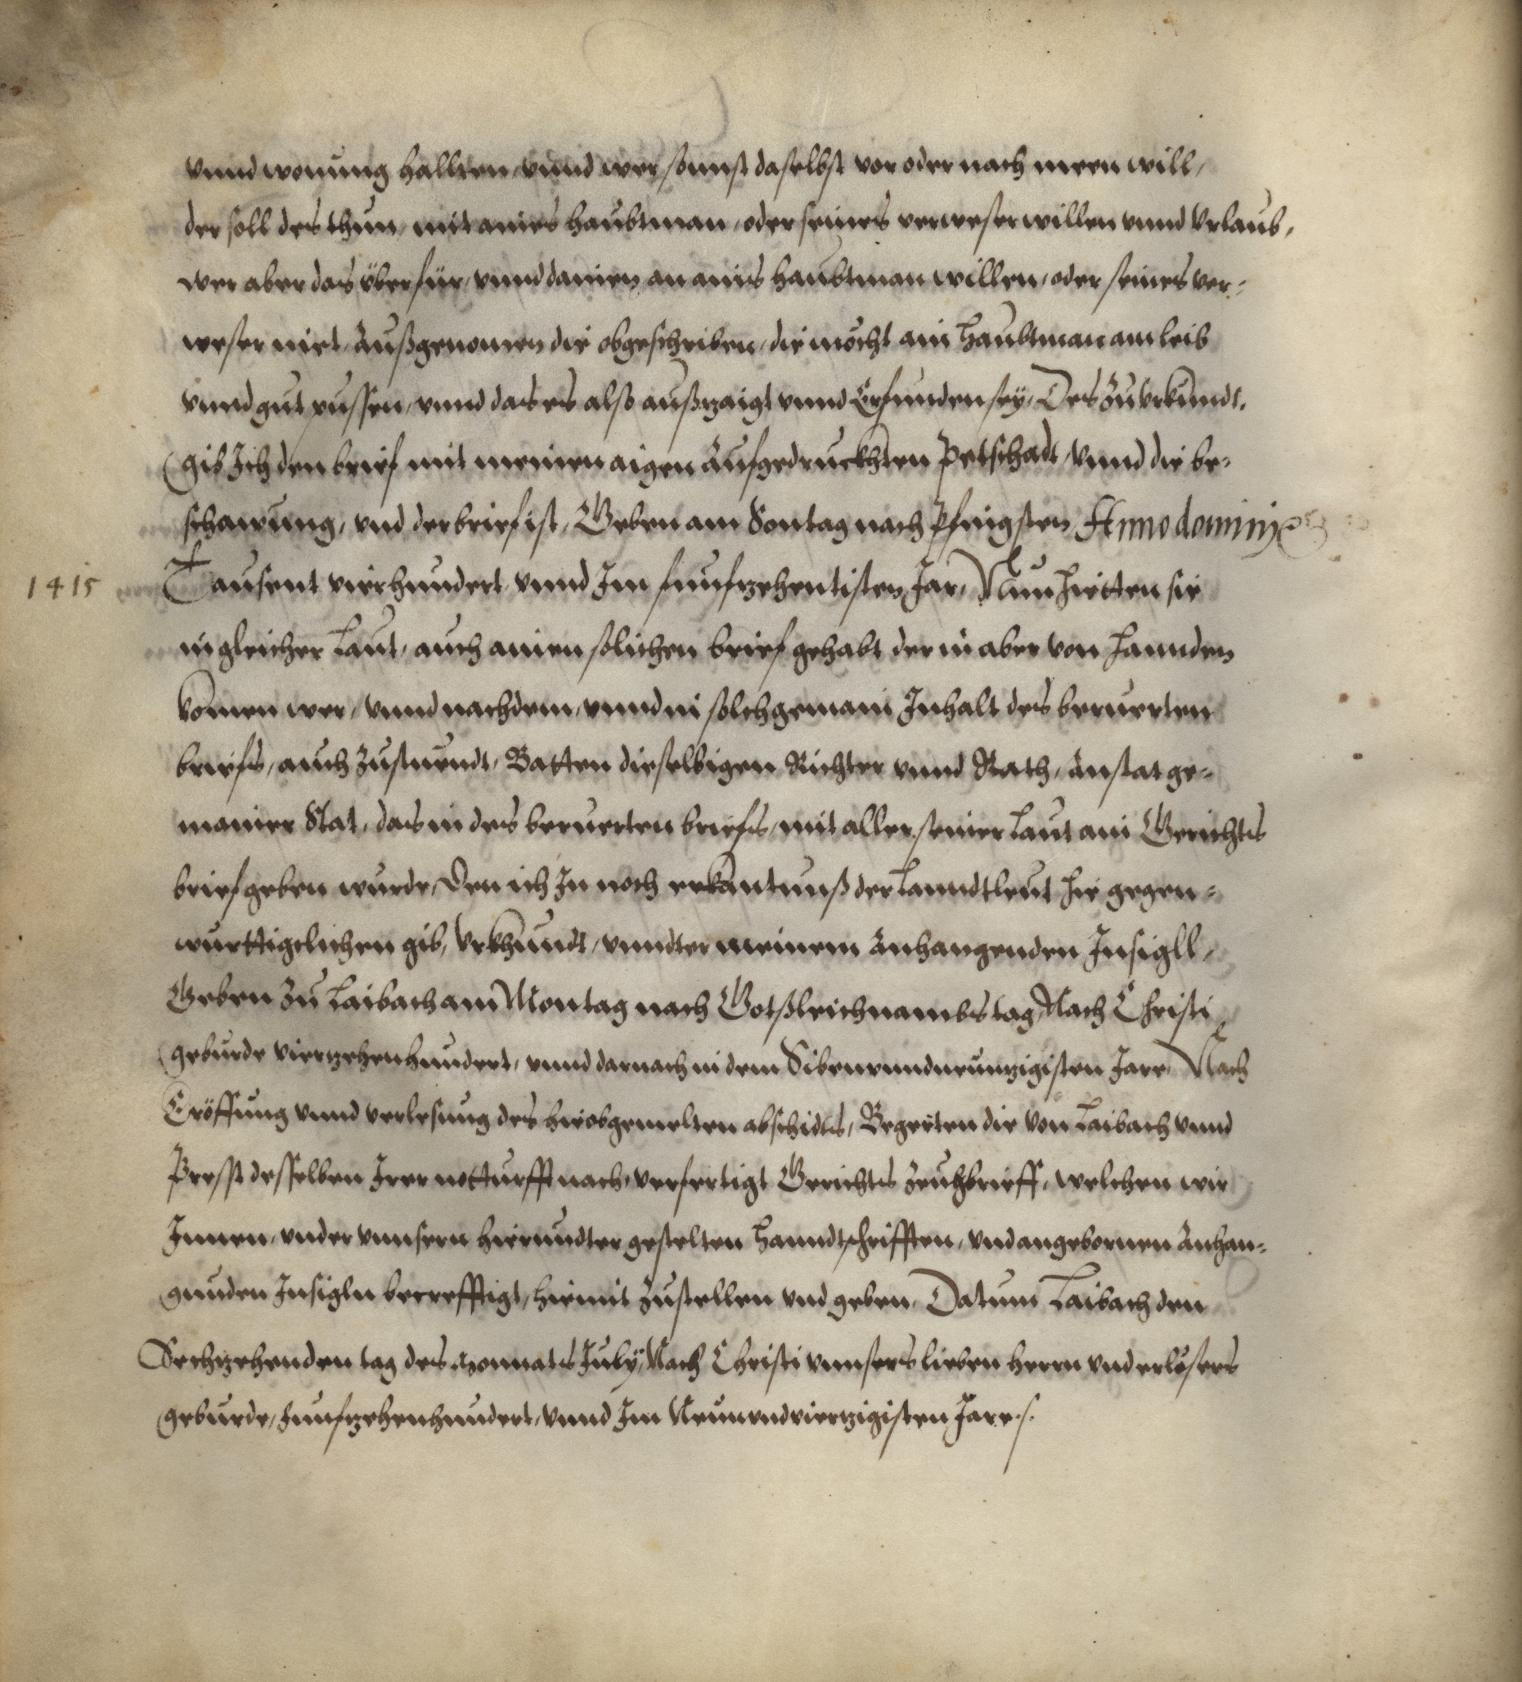 vnnd wonung hallten, vnnd wer sonnst daselbst vor oder nach meen will,
der soll des thun, mit aines haubtman, oder seines verweser willen vnnd Vrlaub,
wer aber das überfür, vnnd darien an ainis haubtman willen, oder seines ver-
weser niet, außgenomen die obgeschriben, die möcht ain haubtman am leib
vnnd gut pussen, vnnd das es also außzaigt vnnd Erfunden sey, Des zu vrkundt,
gib Ich den brief mit meinen aigen Aufgedruckhten Petschadt, vnnd die be-
schawung, vnd der brief ist, Geben am Sontag nach Pfingsten Anno dominj
1415
Tausent vierhundert vnnd Im funfzehentisten Jar, Nun hietten sie
in gleicher Laut, auch ainen solichen brief gehabt der in aber von hannden
komen wer, vnnd nachdem, vnnd in solch gemain Inhalt des beruerten
briefs, auch zustuendt, Batten dieselbigen Richter vnnd Rath, anstat ge-
mainer Stat, das in des beruerten briefs, mit aller seiner Laut ain Gerichts
brief geben wurde, Den ich In noch erkantnuß der Lanndtleut hie gegen-
wurttigclichen gib, Vrkhundt, vnndter meinem Anhangenden Insigll,
Geben zu Laibach am Montag nach Gotßleichnambs tag, Nach Christi
geburde vierzehenhundert, vnnd darnach in dem Sibenvndneunzigisten Jare, Nach
Eröffung vnnd verlesung des hieobgemelten abschidts, Begerten die von Laibach vnnd
desselben Irer notturfft nach, verfertigt Gerichts zeugbrieff, welchen wir
Innen, vnder vnnsern hierundter gestelten Hanndtschrifften, vnd angebornen Anhan-
gunden Insigln becrefftigt, hiemit zustellen vnd geben, Datum Laibach den
Sechzehenden tag des Monnats July, Nach Christi vnnsers lieben herrn vnd erlösers
geburde, funfzehenhundert, vnnd Im Neunvndvierzigisten Jare.